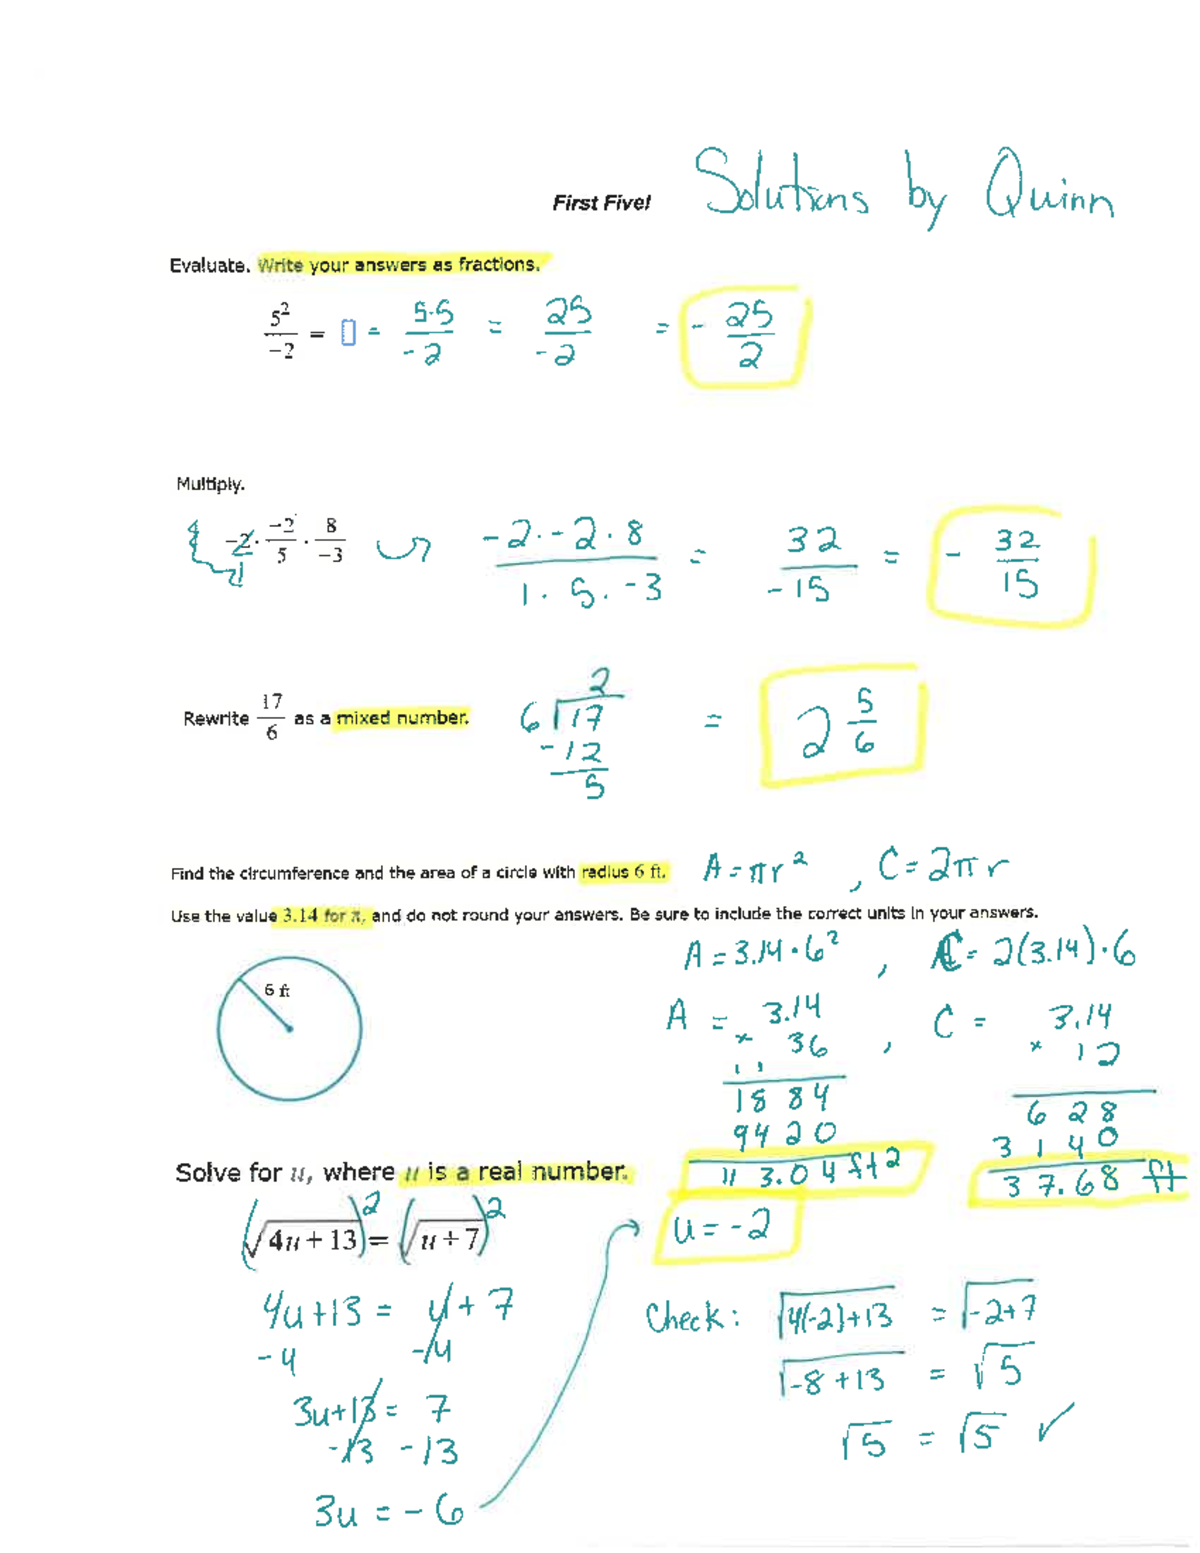 First Five! Solutions by Quinn
Evaluate. Write your answers as fractions.
5²/-2 = ▯ = 5·5/-2 = 25/-2 = - 25/2
Multiply.
-2 · -2/5 · 8/-3 -2·-2·8/1·5·-3 = 32/-15 = - 32/15
Rewrite 17/6 as a mixed number. 6 17 2 -12 5 = 2 5/6
Find the circumference and the area of a circle with radius 6 ft. A = πr² , C = 2πr
Use the value 3.14 for π, and do not round your answers. Be sure to include the correct units in your answers.
A = 3.14·6² , C = 2(3.14)·6
6 ft
A = 3.14 , C = 3.14
× 36 × 12
1 1
1884 628
9420 3140
113.04 ft² 37.68 ft
Solve for u, where u is a real number.
(√4u + 13)² = (√u + 7)² u = -2
4u+13 = u+7 Check: √4(-2)+13 = √-2+7
-u -u √-8+13 = √5
3u+13 = 7 √5 = √5 ✓
-13 -13
3u = -6